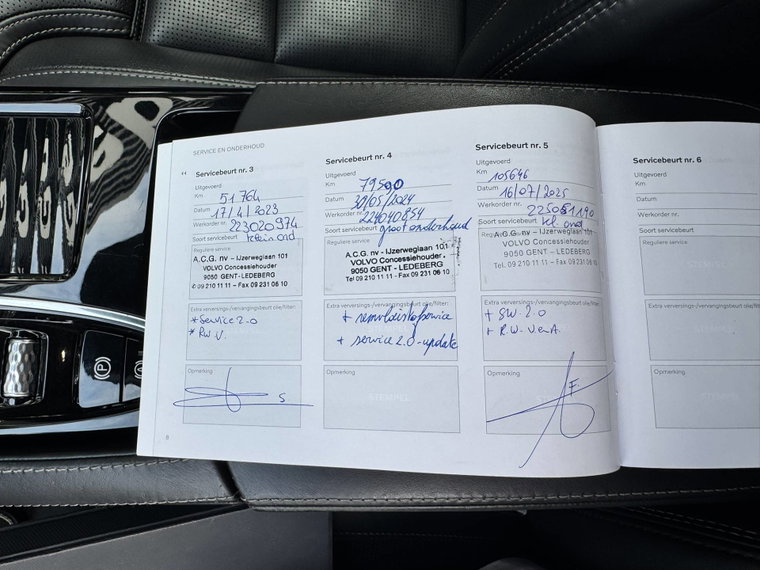 SERVICE EN ONDERHOUD
‹‹ Servicebeurt nr. 3
Uitgevoerd
Km 51 764
Datum 17/4/2023
Werkorder nr. 223020974
Soort servicebeurt klein ond
Reguliere service
A.C.G. nv – IJzerweglaan 101
VOLVO Concessiehouder
9050 GENT - LEDEBERG
✆ 09 210 11 11 - Fax 09 231 06 10
Extra verversings-/vervangingsbeurt olie/filter:
* Service 2.0
* RW V.
Opmerking
S
8
Servicebeurt nr. 4
Uitgevoerd
Km 79590
Datum 30/05/2024
Werkorder nr. 224040854
Soort servicebeurt groot onderhoud
Reguliere service
A.C.G. nv - IJzerweglaan 101
VOLVO Concessiehouder
9050 GENT - LEDEBERG
Tel. 09 210 11 11 - Fax 09 231 06 10
Extra verversings-/vervangingsbeurt olie/filter:
+ remvloeistofservice
+ service 2.0-update
Opmerking
STEMPEL
Servicebeurt nr. 5
Uitgevoerd
Km 105646
Datum 16/07/2025
Werkorder nr. 225051190
Soort servicebeurt kl. ond
A.C.G. nv - IJzerweglaan 101
Reguliere service
VOLVO Concessiehouder
9050 GENT - LEDEBERG
Tel. 09 210 11 11 - Fax 09 231 06 10
Extra verversings-/vervangingsbeurt olie/filter:
+ SW 2.0
+ R.W. V en A.
Opmerking
Servicebeurt nr. 6
Uitgevoerd
Km
Datum
Werkorder nr.
Soort servicebeurt
Reguliere service
Extra verversings-/vervangingsbeurt
Opmerking
STEMPEL
(P)